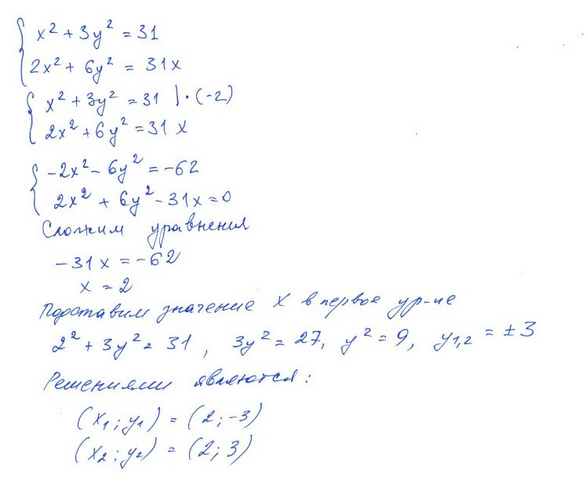 { x² + 3y² = 31
2x² + 6y² = 31x
{ x² + 3y² = 31 | · (-2)
2x² + 6y² = 31x
{ -2x² - 6y² = -62
2x² + 6y² - 31x = 0
Сложим уравнения
-31x = -62
x = 2
Подставим значение x в первое ур-ие
2² + 3y² = 31, 3y² = 27, y² = 9, y₁,₂ = ±3
Решениями являются:
(x₁; y₁) = (2; -3)
(x₂; y₂) = (2; 3)